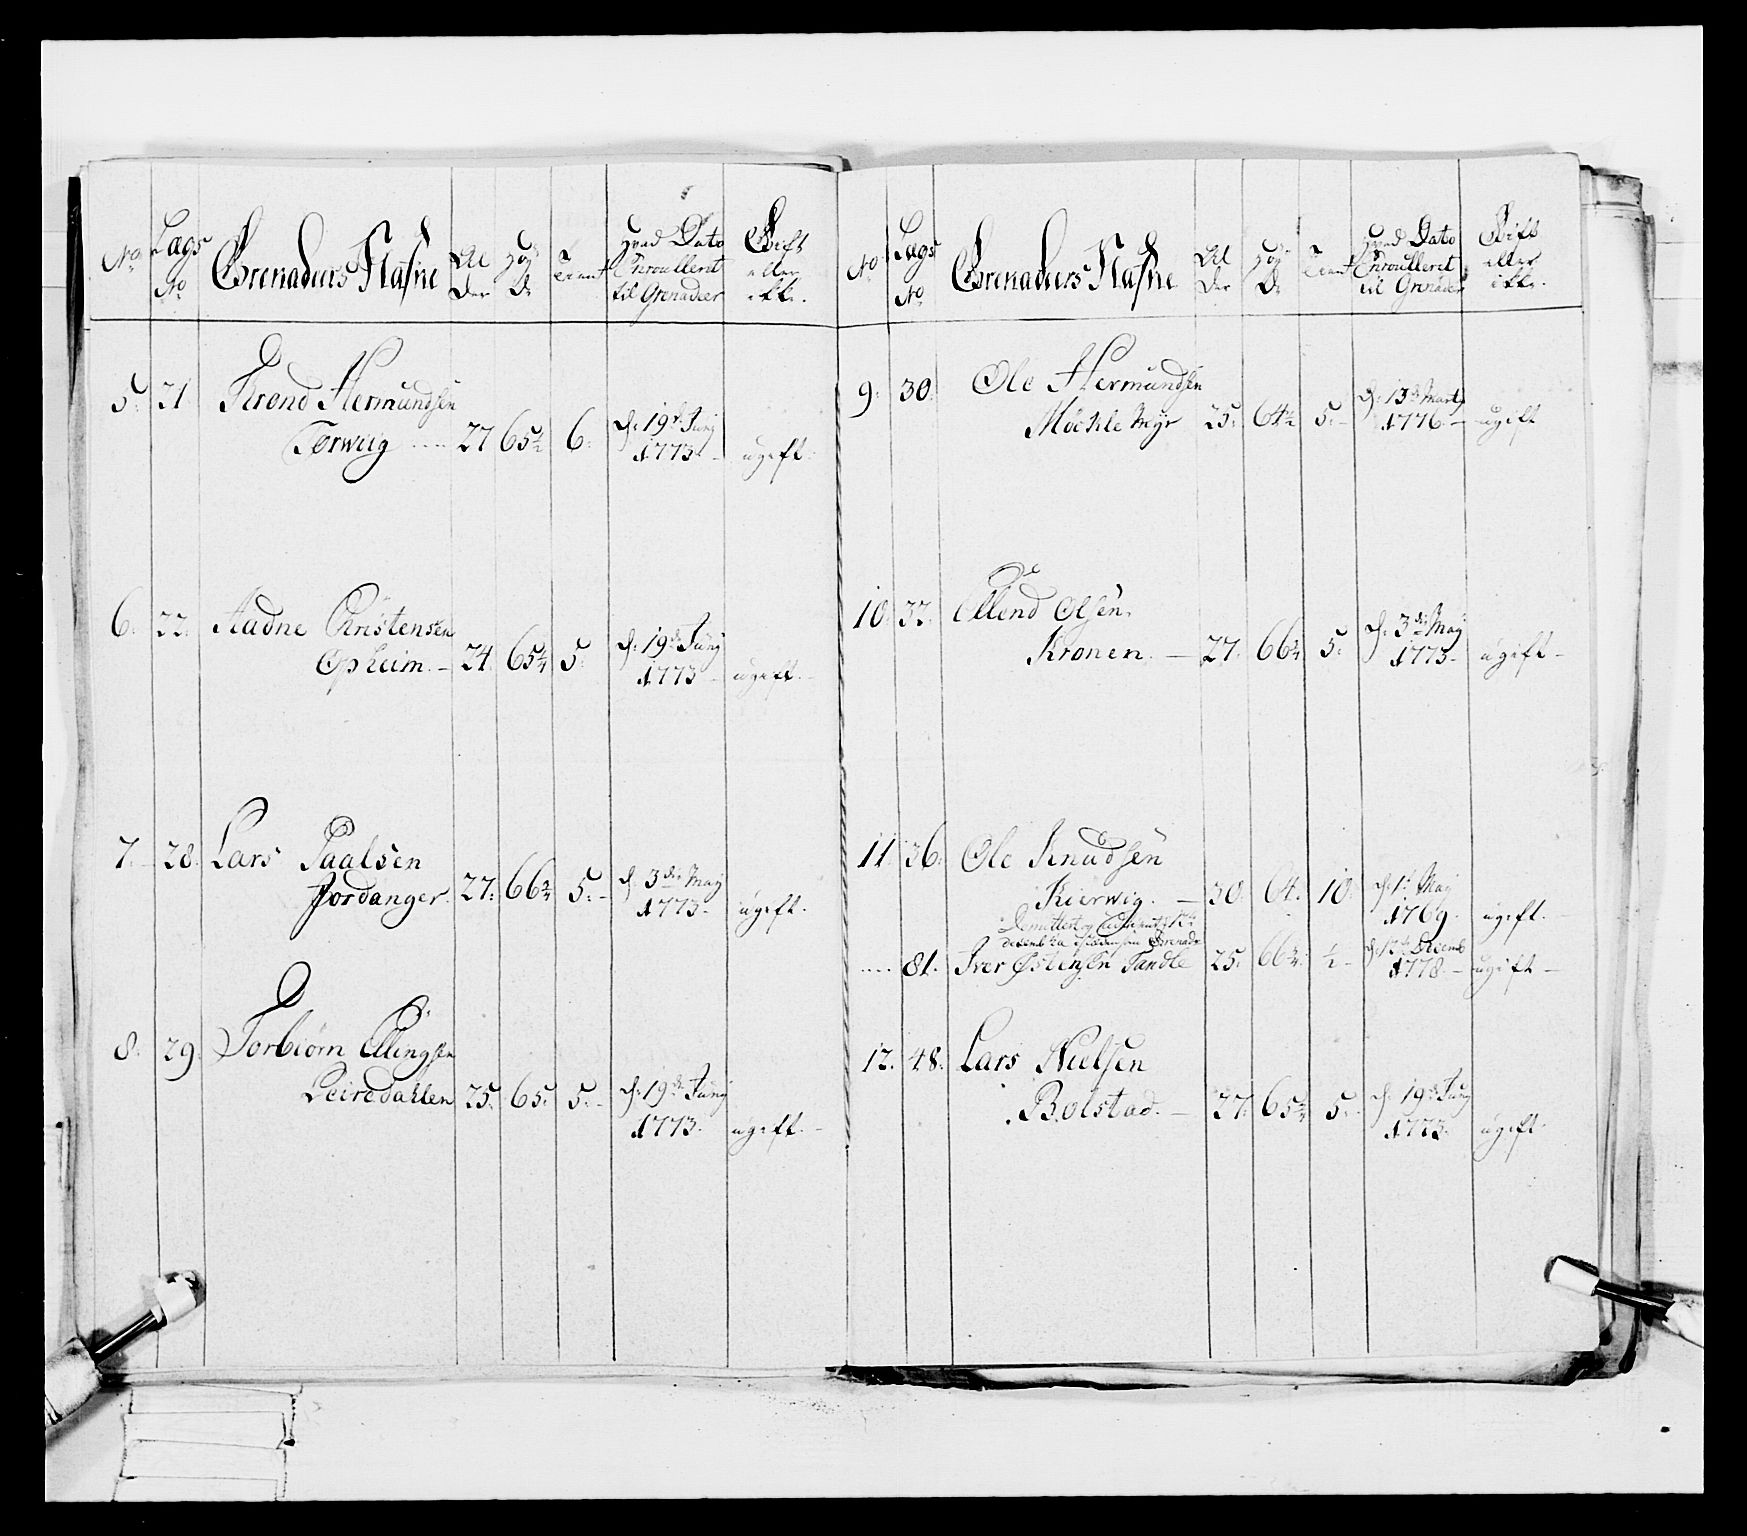 No
Lægs No
Grenadeers Nafne
Al der
Høy de
Tient
Hvad Dato Enroulleret til Grenadeer
Gift eller ikke.
5. 21 Trond Hermundsen
Torwiig 27 65½ 6. d: 19de Juny 1773 ugift.
6. 22. Aadne Christensen
Opheim. 24. 65¾ 5. d: 19de Juny 1773 ugift.
7. 28. Lars Paalsen
Jordanger. 27. 66¾ 5. d: 3die May 1773. ugift.
8. 29. Torbiørn Ellingsen
Leiredahlen 25. 65. 5. d: 19de Juny 1773. ugift.
No
Lægs No
Grenadeers Nafne
Al der
Høy de
Tient
Hvad Dato Enroulleret til Grenadeer
Gift eller ikke.
9. 30. Ole Hermundsen
Möchle Myr 25. 64½ 5. d: 13de Marty 1776. ugift
10. 32. Ellend Olsen.
Kronen. 27. 66¾ 5. d: 3die May 1773 ugift
11. 36. Ole Knudsen
Kierwig. 30. 64. 10. d: 1te May 1769. ugift.
Demittert og
Grenadr
81. Iver Østensen Tandle 25. 66¾. ½ d: 12de Decemb 1778. ugift
12. 48. Lars Nielsen
Bolstad. 27. 65¾ 5. d: 19de Juny 1773. ugift.